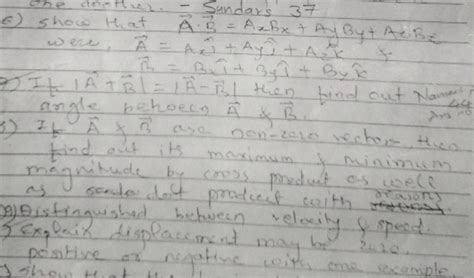 the another. - Sundars 37
e) Show that A⃗·B⃗ = AxBx + AyBy + AzBz
were, A⃗ = Axî + Ayĵ + Azk̂ &
B⃗ = Bxî + Byĵ + Byk̂
If |A⃗+B⃗| = |A⃗-B⃗| then find out
angle between A⃗ & B⃗.
If A⃗ & B⃗ are non-zero vector, then
find out its maximum & minimum
magnitude by cross product as well
as dot product with reasons
Distinguished between velocity & speed.
Explain displacement may be zero,
positive or negative with one example
Show that the